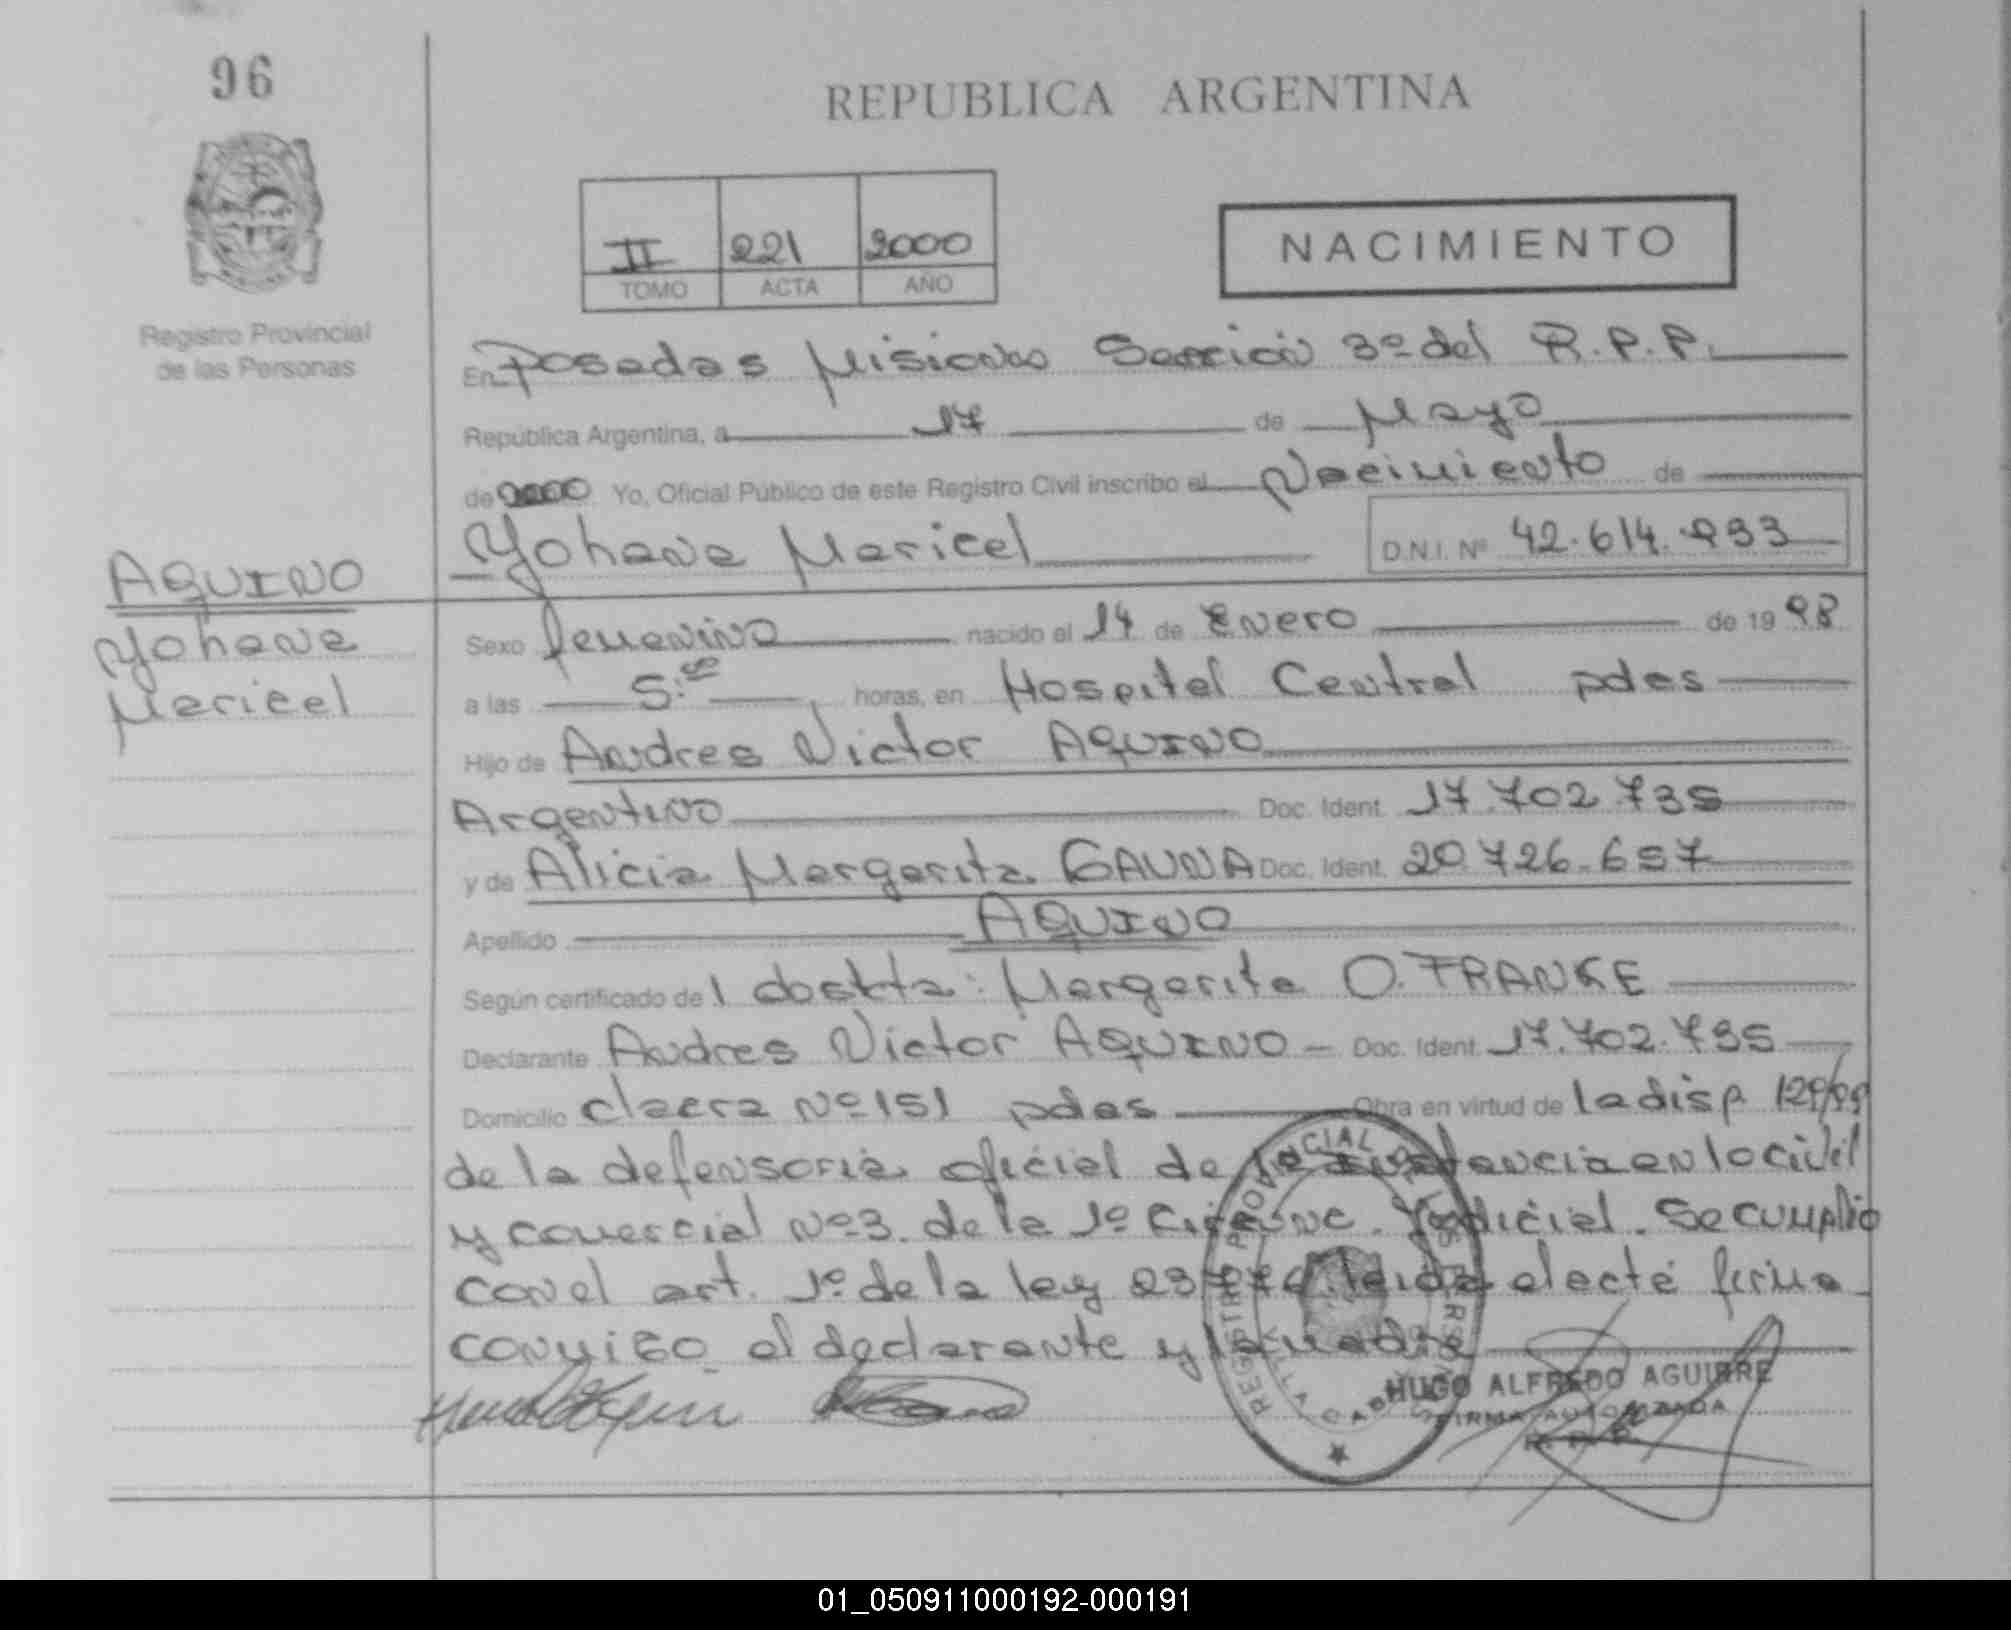 96
REPUBLICA ARGENTINA
II 221 2000
TOMO ACTA AÑO
NACIMIENTO
Registro Provincial
de las Personas
En Posadas Misiones Sección 3º del R.P.P.
República Argentina, a 17 de Mayo
de 2000 Yo, Oficial Público de este Registro Civil inscribo el Nacimiento de
Yohana Maricel D.N.I. Nº 42.614.933
AQUINO
Yohana
Maricel
Sexo femenino nacido el 14 de Enero de 1998
a las 5: horas, en Hospital Central pdas
Hijo de Andres Victor AQUINO
Argentino Doc. Ident. 17.702.735
y de Alicia Margarita GAUNA Doc. Ident. 20.726.657
Apellido AQUINO
Según certificado de l obstta: Margarita O. FRANKE
Declarante Andres Victor AQUINO Doc. Ident. 17.702.735
Domicilio claera Nº 151 pdas Obra en virtud de la disp. 129/99
de la defensoria oficial de en lo civil
y comercial Nº 3. de la 1º Circunc. Judicial. Se cumplio
con el art. 1º de la ley leida el acta firma
conmigo el declarante y la madre
REGISTRO PROVINCIAL DE LAS PERSONAS
HUGO ALFREDO AGUIRRE
FIRMA AUTORIZADA
R. P. P.
01_050911000192-000191